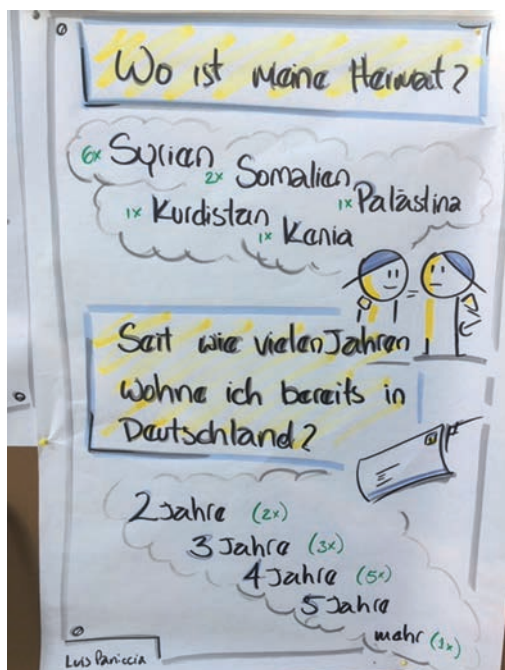 Wo ist meine Heimat?
6x Syrien
2x Somalien
1x Palästina
1x Kurdistan
1x Kenia
Seit wie vielen Jahren
wohne ich bereits in
Deutschland?
2 Jahre (2x)
3 Jahre (3x)
4 Jahre (5x)
5 Jahre
mehr (1x)
Luis Paniccia